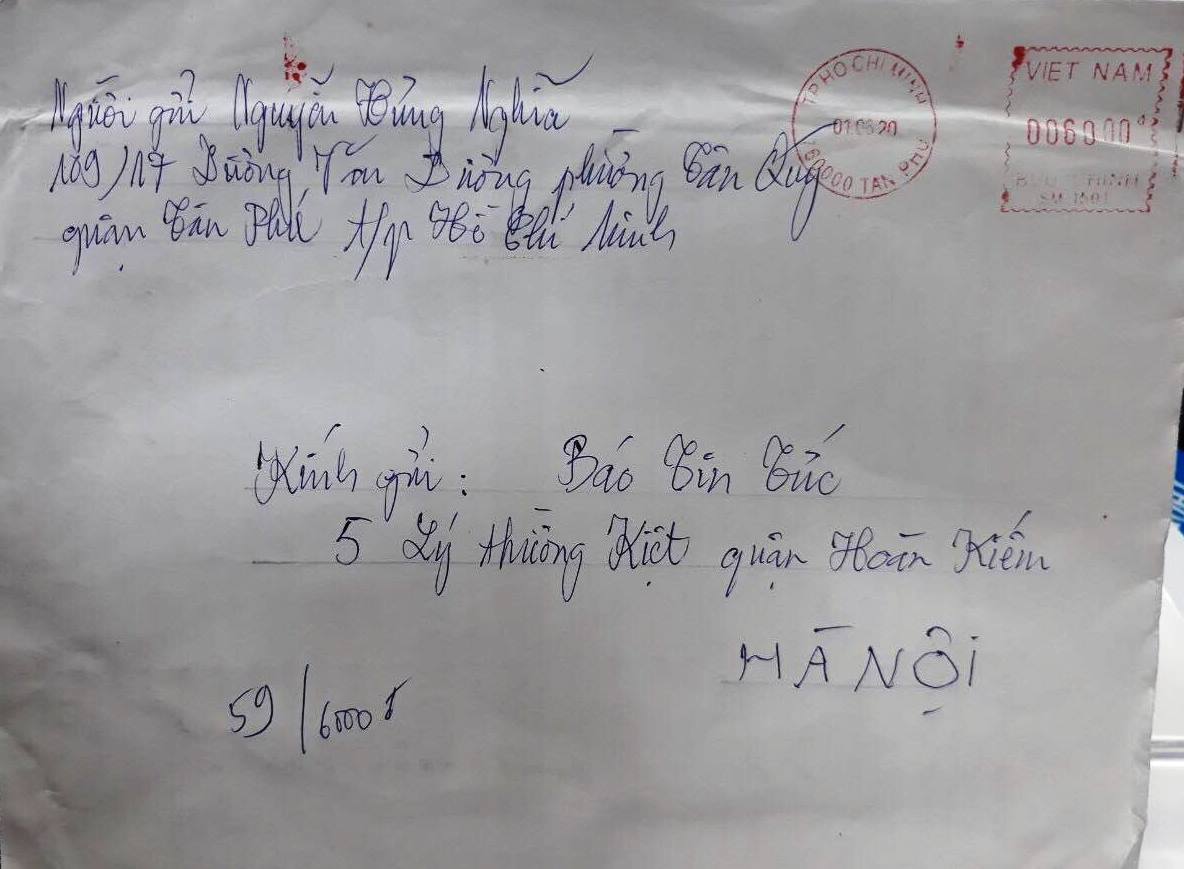 Người gửi Nguyễn Hùng Nghĩa
109/17 Dương Văn Dương phường Tân Quý
quận Tân Phú t/p Hồ Chí Minh
TP HO CHI MINH
01.06.20
760000 TAN PHU
VIET NAM
006000đ
SM 1501
Kính gửi: Báo Tin Tức
5 Lý thường Kiệt quận Hoàn Kiếm
HÀ NỘI
59/6000đ